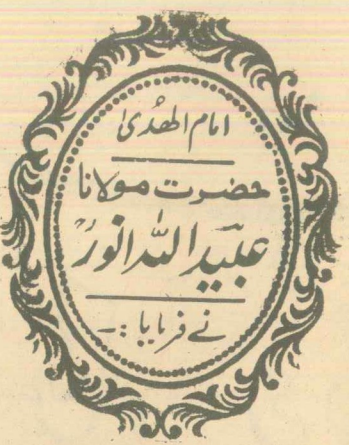 امام الھُدیٰ
حضرت مولانا
عبید اللہ انورؒ
نے فرمایا :۔